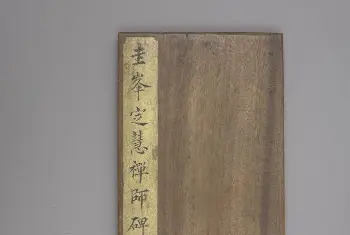 圭峯定慧禪師碑